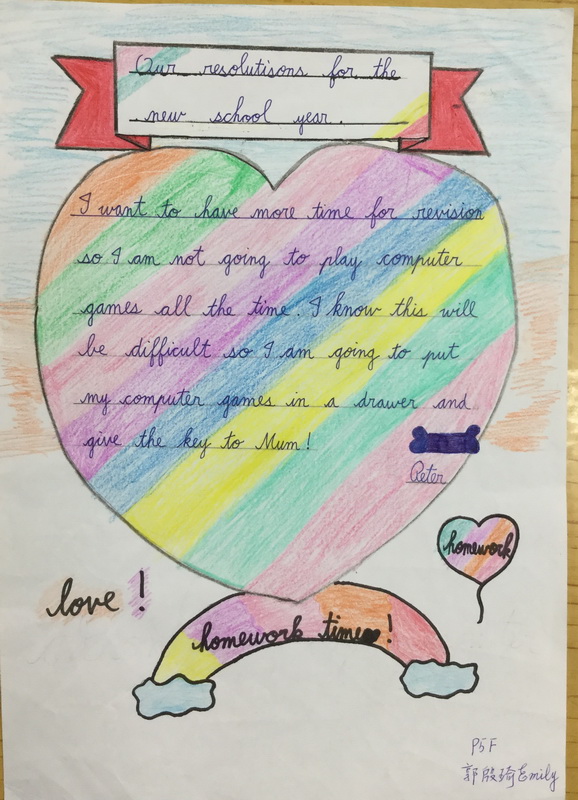 Our resolutisons for the
new school year.
I want to have more time for revision
so I am not going to play computer
games all the time. I know this will
be difficult so I am going to put
my computer games in a drawer and
give the key to Mum!
Peter
homework
love !
homework time !
P5F
郭殷琦 Emily